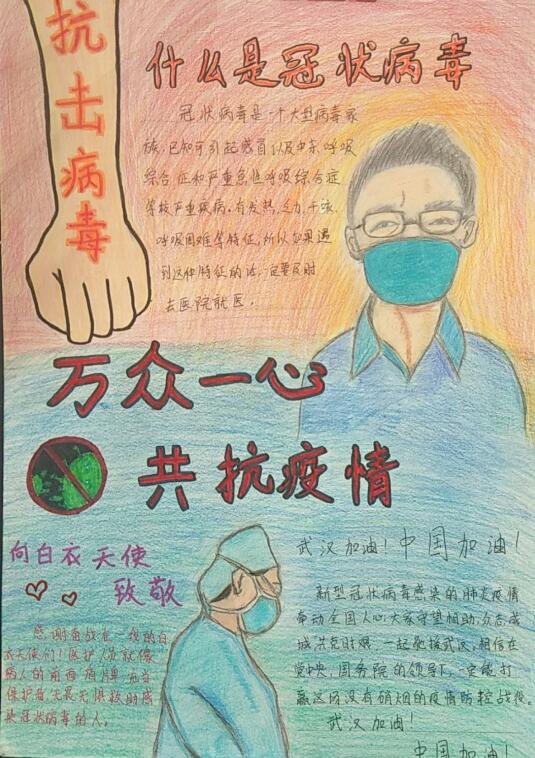 抗击病毒
什么是冠状病毒
冠状病毒是一个大型病毒家
族,已知可引起感冒以及中东呼吸
综合征和严重急性呼吸综合症
等较严重疾病。有发热、乏力、干咳、
呼吸困难等特征,所以如果遇
到这种特征的话,一定要及时
去医院就医。
万众一心
共抗疫情
向白衣天使
致敬
感谢奋战在一线的白
衣天使们!医护人员就像
病人的前面
保护着
染冠状病毒的人。
武汉加油!中国加油!
新型冠状病毒感染的肺炎疫情
牵动全国人心大家守望相助,众志成
城共克时艰,一起驰援武汉,相信在
党中央,国务院的领导下,一定能打
赢这场没有硝烟的疫情防控战役。
武汉加油!
中国加油!